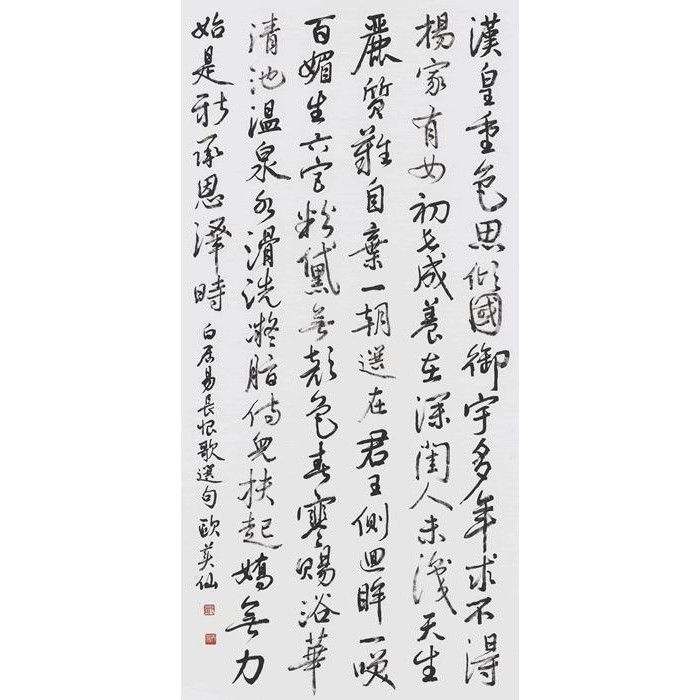 漢皇重色思傾國御宇多年求不得
楊家有女初長成養在深閨人未識天生
麗質難自棄一朝選在君王側迴眸一咲
百媚生六宮粉黛無顏色春寒賜浴華
清池溫泉水滑洗凝脂侍兒扶起嬌無力
始是新承恩澤時 白居易長恨歌選句 歐英仙